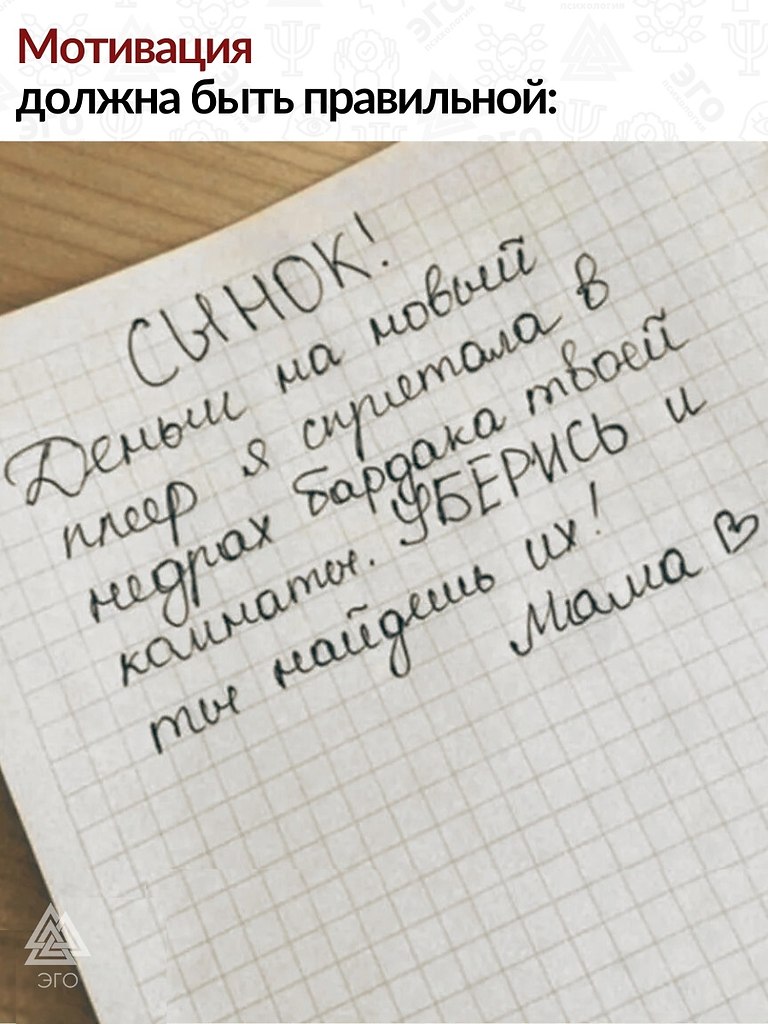 Мотивация
должна быть правильной:
СЫНОК!
Деньги на новый
плеер я спрятала в
недрах бардака твоей
комнаты. УБЕРИСЬ и
ты найдешь их!
Мама
ЭГО